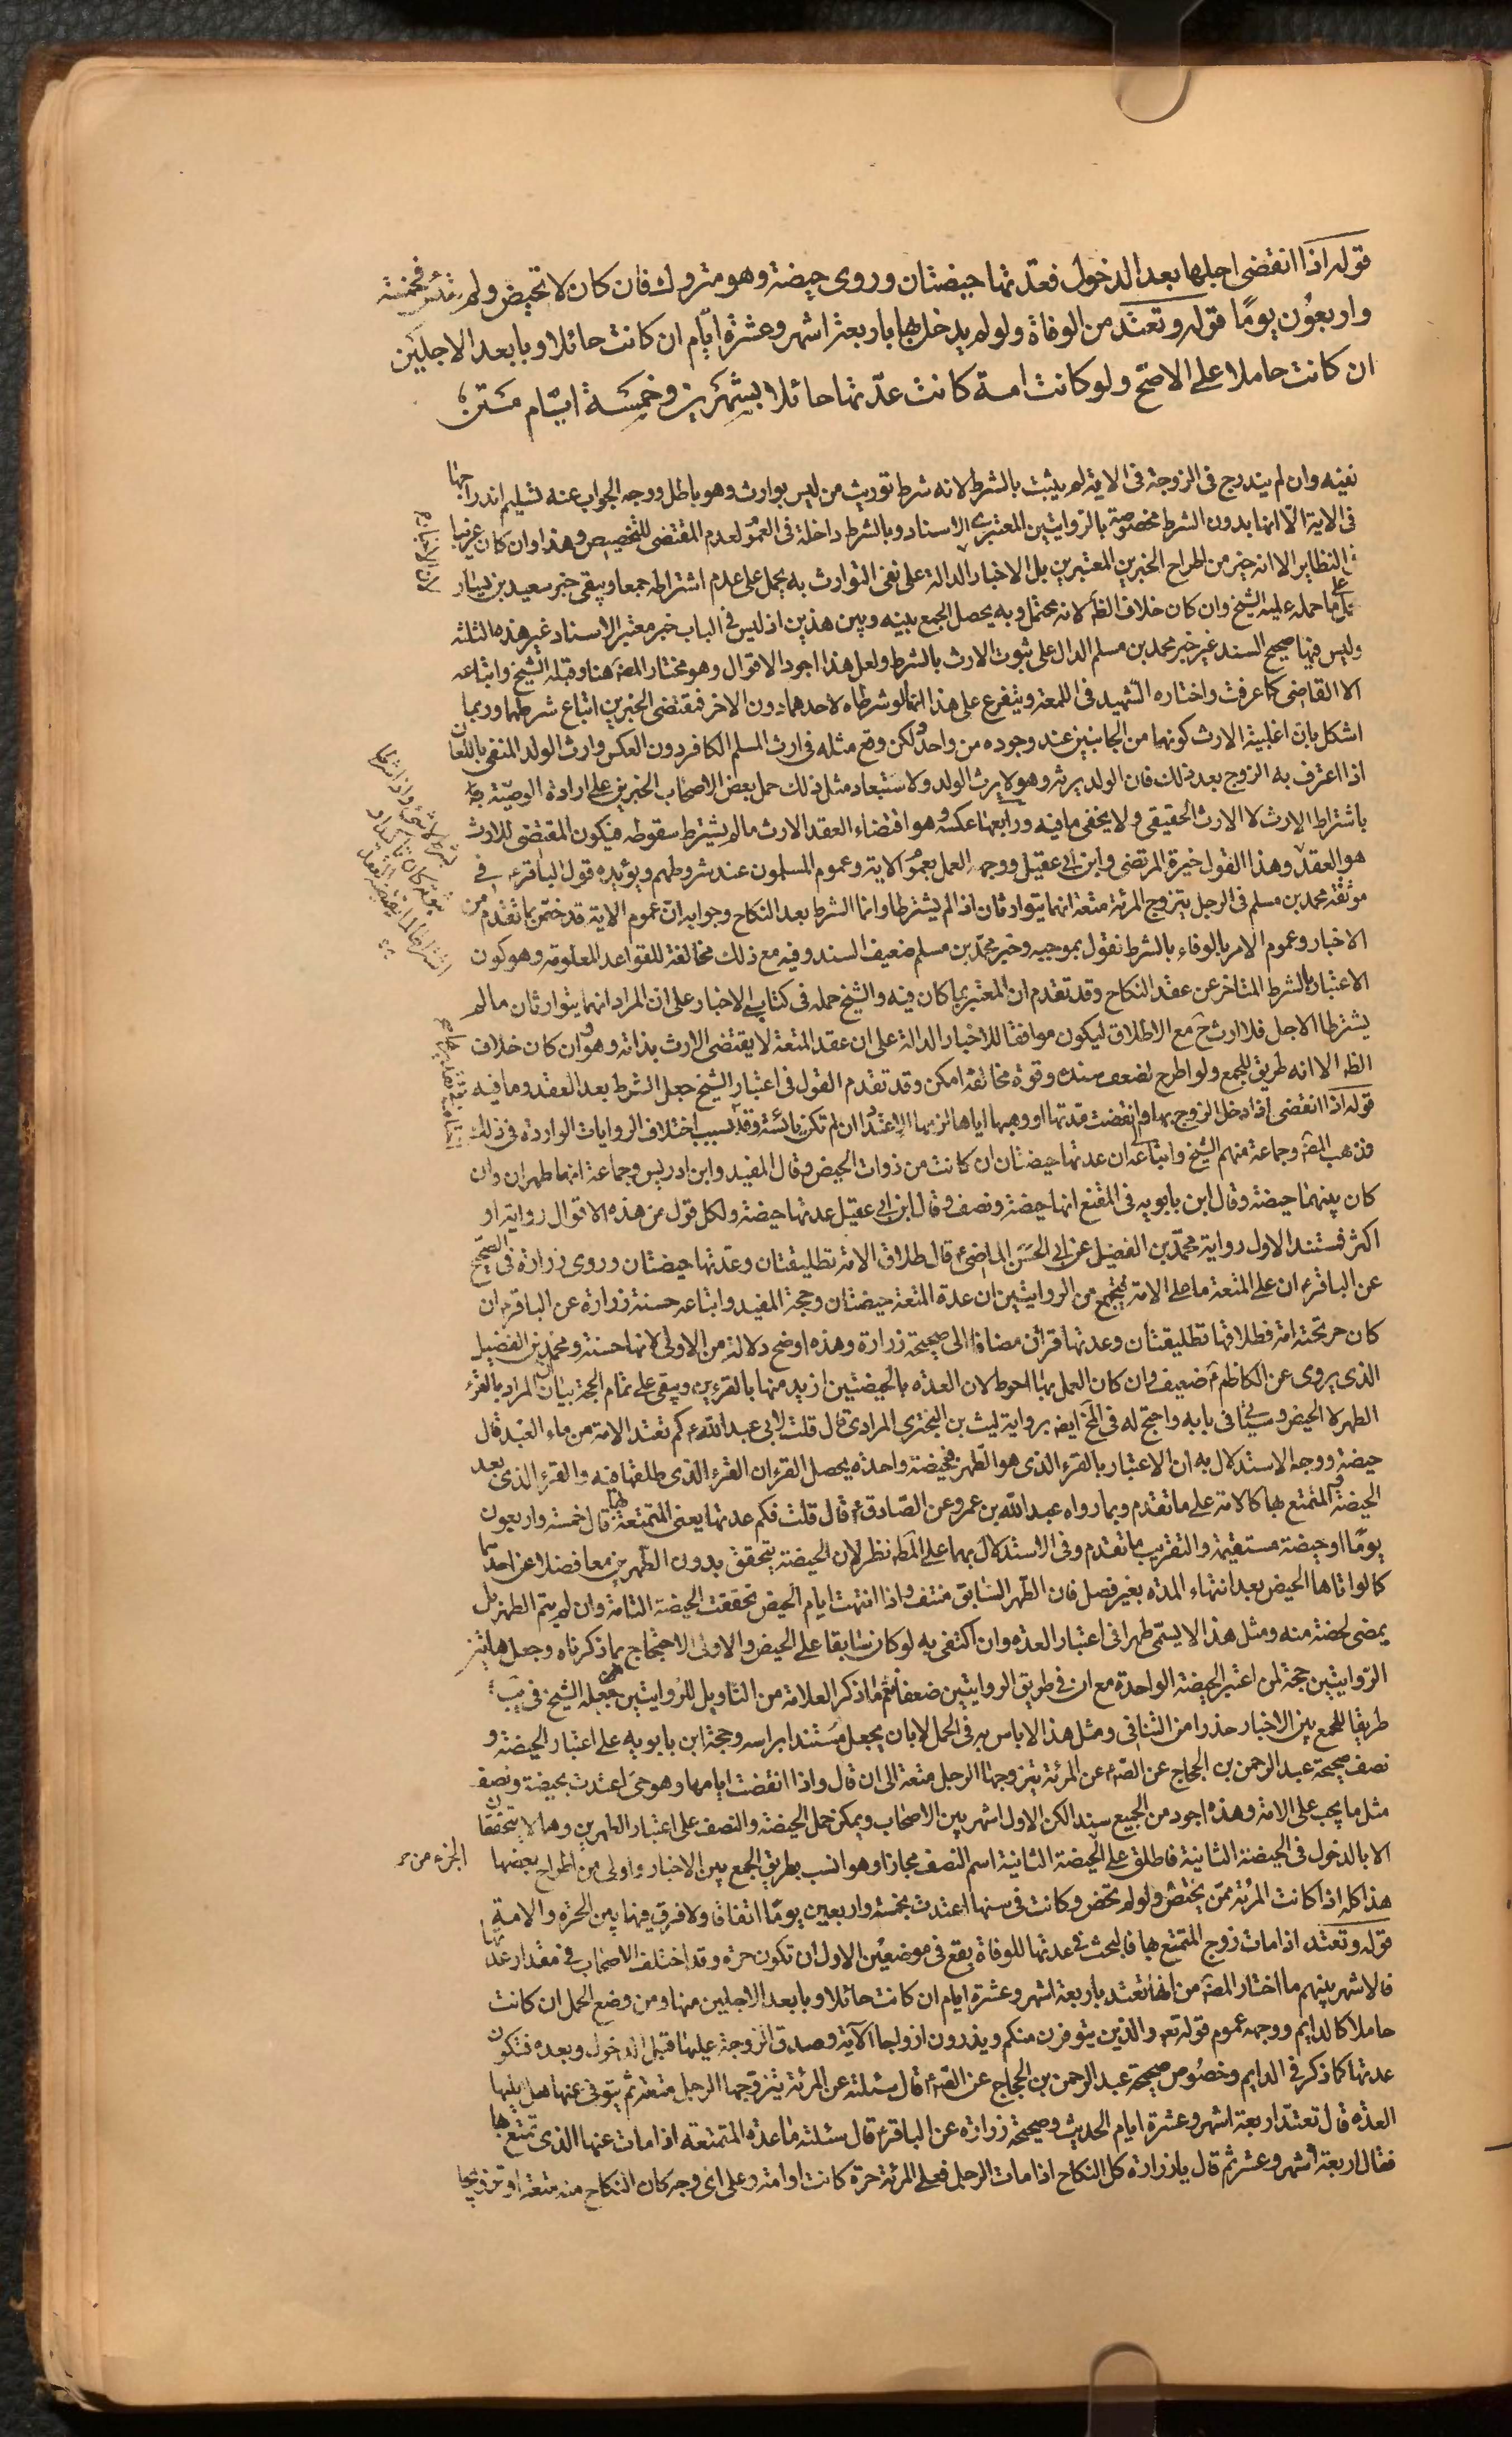 قوله اذا انقضى اجلها بعد الدخول فعدتها حيضتان وروى حيضة وهو متروك فان كان لا تحيض ولم تيئس فخمسة
واربعون يومًا قوله وتعتد من الوفاة ولو لم يدخل بها باربعة اشهر وعشرة ايّام ان كانت حائلا وبابعد الاجلين
ان كانت حاملا على الاصح ولو كانت امة كانت عدّتها حائلا بشهرين وخمسة ايّام متن
نفيه وان لم يندرج في الزوجة في الاية لم يثبت بالشرط لانه شرط توريث من ليس بوارث وهو باطل ووجه الجواب عنه تسليم اندراجها
في الاية الّا انها بدون الشرط مخصوصة بالروايتين المعتبرى الاسناد وبالشرط داخلة في العموم لعدم المقتضى للتخصيص وهذا وان كان عزيز
النظاير الا انه خير من اطراح الخبرين المعتبرين بل الاخبار الدالة على نفى التوارث به يحمل على عدم اشتراطه جمعا ويبقى خبر سعيد بن يسار
على ما حمله عليه الشيخ وان كان خلاف الظ لانه محتمل وبه يحصل الجمع بينه وبين هذين اذ ليس في الباب خبر معتبر الاسناد غير هذه الثلثة
وليس فيها صحيح السند غير خبر محمد بن مسلم الدال على ثبوت الارث بالشرط ولعل هذا اجود الاقوال وهو مختار المص هنا وقبله الشيخ واتباعه
الا القاضى كما عرفت واختاره الشهيد في اللمعة ويتفرع على هذا انهما لو شرطاه لاحدهما دون الاخر فمقتضى الخبرين اتباع شرطهما وربما
اشكل بان اغلبية الارث كونهما من الجانبين عند وجوده من واحد ولكن وقع مثله في ارث المسلم الكافر دون العكس وارث الولد المنفى باللعان
اذا اعترف به الزوج بعد ذلك فان الولد يرثه وهو لا يرث الولد ولاستبعاد مثل ذلك حمل بعض الاصحاب الخبرين على ارادة الوصيّة
باشتراط الارث لا الارث الحقيقى ولا يخفى ما فيه ورابعها عكسه وهو اقتضاء العقد الارث ما لم يشترط سقوطه فيكون المقتضى للارث
هو العقد وهذا القول خيرة المرتضى وابن ابي عقيل ووجهه العمل بعموم الاية وعموم المسلمون عند شروطهم ويؤيده قول الباقر ع في
موثقة محمد بن مسلم في الرجل يتزوج المرئة متعة انهما يتوارثان اذا لم يشترطا وانما الشرط بعد النكاح وجوابه انّ عموم الاية قد خصّ بما تقدم من
الاخبار وعموم الامر بالوفاء بالشرط نقول بموجبه وخبر محمّد بن مسلم ضعيف السند وفيه مع ذلك مخالفة للقواعد المعلومة وهو كون
الاعتبار بالشرط المتاخر عن عقد النكاح وقد تقدم ان المعتبر بما كان فيه والشيخ حمله في كتابى الاخبار على ان المراد انهما يتوارثان ما لم
يشترطا الاجل فلا ارث ح مع الاطلاق ليكون موافقا للاخبار الدالة على ان عقد المتعة لا يقتضى الارث بذاته وهو وان كان خلاف
الظ الا انه طريق للجمع ولو اطرح لضعف سنده وقوة مخالفه امكن وقد تقدم القول في اعتبار الشيخ جعل الشرط بعد العقد وما فيه
قوله اذا انقضى اذا دخل الزوج بها وانقضت مدتها او وهبها اياها لزمها الاعتداد ان لم تكن يائسة وقد بسبب اختلاف الروايات الواردة في ذلك
فذهب المص وجماعة منهم الشيخ واتباعه ان عدتها حيضتان ان كانت من ذوات الحيض وقال المفيد وابن ادريس وجماعة انها طهران وان
كان بينهما حيضة وقال ابن بابويه في المقنع انها حيضة ونصف وقال ابن ابى عقيل عدتها حيضة ولكل قول من هذه الاقوال رواية او
اكثر فمستند الاول رواية محمّد بن الفضيل عن ابى الحسن الماضى ع قال طلاق الامة تطليقتان وعدتها حيضتان وروى زرارة في الصحيح
عن الباقر ع ان على المتعة ما على الامة فيجتمع من الروايتين ان عدة المتعة حيضتان وحجة المفيد واتباعه حسنة زرارة عن الباقر ع ان
كان حر تحته امة فطلاقها تطليقتان وعدتها قرآن مضافا الى صحيحة زرارة وهذه اوضح دلالة من الاولى لانها حسنة ومحمد بن الفضيل
الذى يروى عن الكاظم ع ضعيف وان كان العمل بها احوط لان العدة بالحيضتين ازيد منها بالقرءين ويبقى على تمام الحجة بيان ان المراد بالقرء
الطهر لا الحيض وسياتى في بابه واحتج له في المخ ايض برواية ليث بن البخترى المرادى قال قلت لابى عبد الله ع كم تعتد الامة من ماء العبد قال
حيضة ووجه الاستدلال به ان الاعتبار بالقرء الذى هو الطهر فبحيضة واحدة يحصل القرءان القرء الذى طلقها فيه والقرء الذى بعد
الحيضة والمتمتع بها كالامة على ما تقدم وبما رواه عبد الله بن عمرو عن الصّادق ع قال قلت فكم عدتها يعنى المتمتعة بها قال خمسة واربعون
يومًا او حيضة مستقيمة والتقريب ما تقدم وفي الاستدلال بهما على المط نظر لان الحيضة يتحقق بدون الطهرين معا فضلا عن احدهما
كما لو اتاها الحيض بعد انتهاء المدة بغير فصل فان الطهر السابق منتف واذا انتهت ايام الحيض تحققت الحيضة التامة وان لم يتم الطهر بل
يمضى لحظة منه ومثل هذا لا يسمّى طهرا في اعتبار العدة وان اكتفى به لو كان سابقا على الحيض والاولى الاحتجاج بما ذكرناه وجعل هاتين
الروايتين حجة لمن اعتبر الحيضة الواحدة مع ان في طريق الروايتين ضعفا نعم ما ذكر العلامة من التاويل للروايتين جعله الشيخ في يب
طريقا للجمع بين الاخبار حذرا من التنافى ومثل هذا لا باس به في الحمل لا بان يجعل مستندا براسه وحجة ابن بابويه على اعتبار الحيضة و
نصف صحيحة عبد الرحمن بن الحجاج عن الص ع عن المرئة يتزوجها الرجل متعة الى ان قال واذا انقضت ايامها وهو حى اعتدت بحيضة ونصف
مثل ما يجب على الامة وهذه اجود من الجميع سندا لكن الاول اشهر بين الاصحاب ويمكن حمل الحيضة والنصف على اعتبار الطهرين وهما لا يتحققان
الا بالدخول في الحيضة الثانية فاطلق على الحيضة الثانية اسم النصف مجازا وهو انسب بطريق الجمع بين الاخبار واولى من اطراح بعضها
هذا كله اذا كانت المرئة ممّن يحيض ولو لم تحض وكانت في سنها اعتدت بخمسة واربعين يومًا اتفاقا ولا فرق فيها بين الحرة والامة
قوله وتعتد اذا مات زوج المتمتع بها فالبحث في عدتها للوفاة يقع في موضعين الاول ان تكون حرة وقد اختلف الاصحاب في مقدار عدتها
فالاشهر بينهم ما اختار المص من انها تعتد باربعة اشهر وعشرة ايام ان كانت حائلا وبابعد الاجلين منها ومن وضع الحمل ان كانت
حاملا كالدايم ووجهه عموم قوله تعه والذين يتوفون منكم ويذرون ازواجا الآية وصدق الزوجة عليها قبل الدخول وبعده فتكون
عدتها كما ذكر في الدايم وخصوص صحيحة عبد الرحمن بن الحجاج عن الص ع قال سئلته عن المرئة يتزوجها الرجل متعة ثم يتوفى عنها هل عليها
العدة قال تعتدّ اربعة اشهر وعشرة ايام الحديث وصحيحة زرارة عن الباقر ع قال سئلته ما عدة المتمتعة اذا مات عنها الذى تمتع بها
فقال اربعة اشهر وعشر ثم قال يا زرارة كل النكاح اذا مات الرجل فعلى المرئة حرة كانت او امة وعلى اى وجه كان النكاح منه متعة او تزويجا